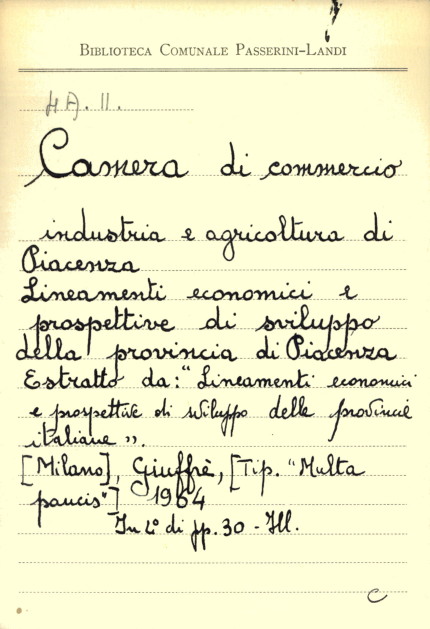 BIBLIOTECA COMUNALE PASSERINI-LANDI
HA. 11.
Camera di commercio
industria e agricoltura di
Piacenza
Lineamenti economici e
prospettive di sviluppo
della provincia di Piacenza
Estratto da: "Lineamenti economici
e prospettive di sviluppo delle provincie
italiane".
[Milano], Giuffrè, [Tip. "Multa
paucis"] 1964
In 4° di pp. 30 - Ill.
C